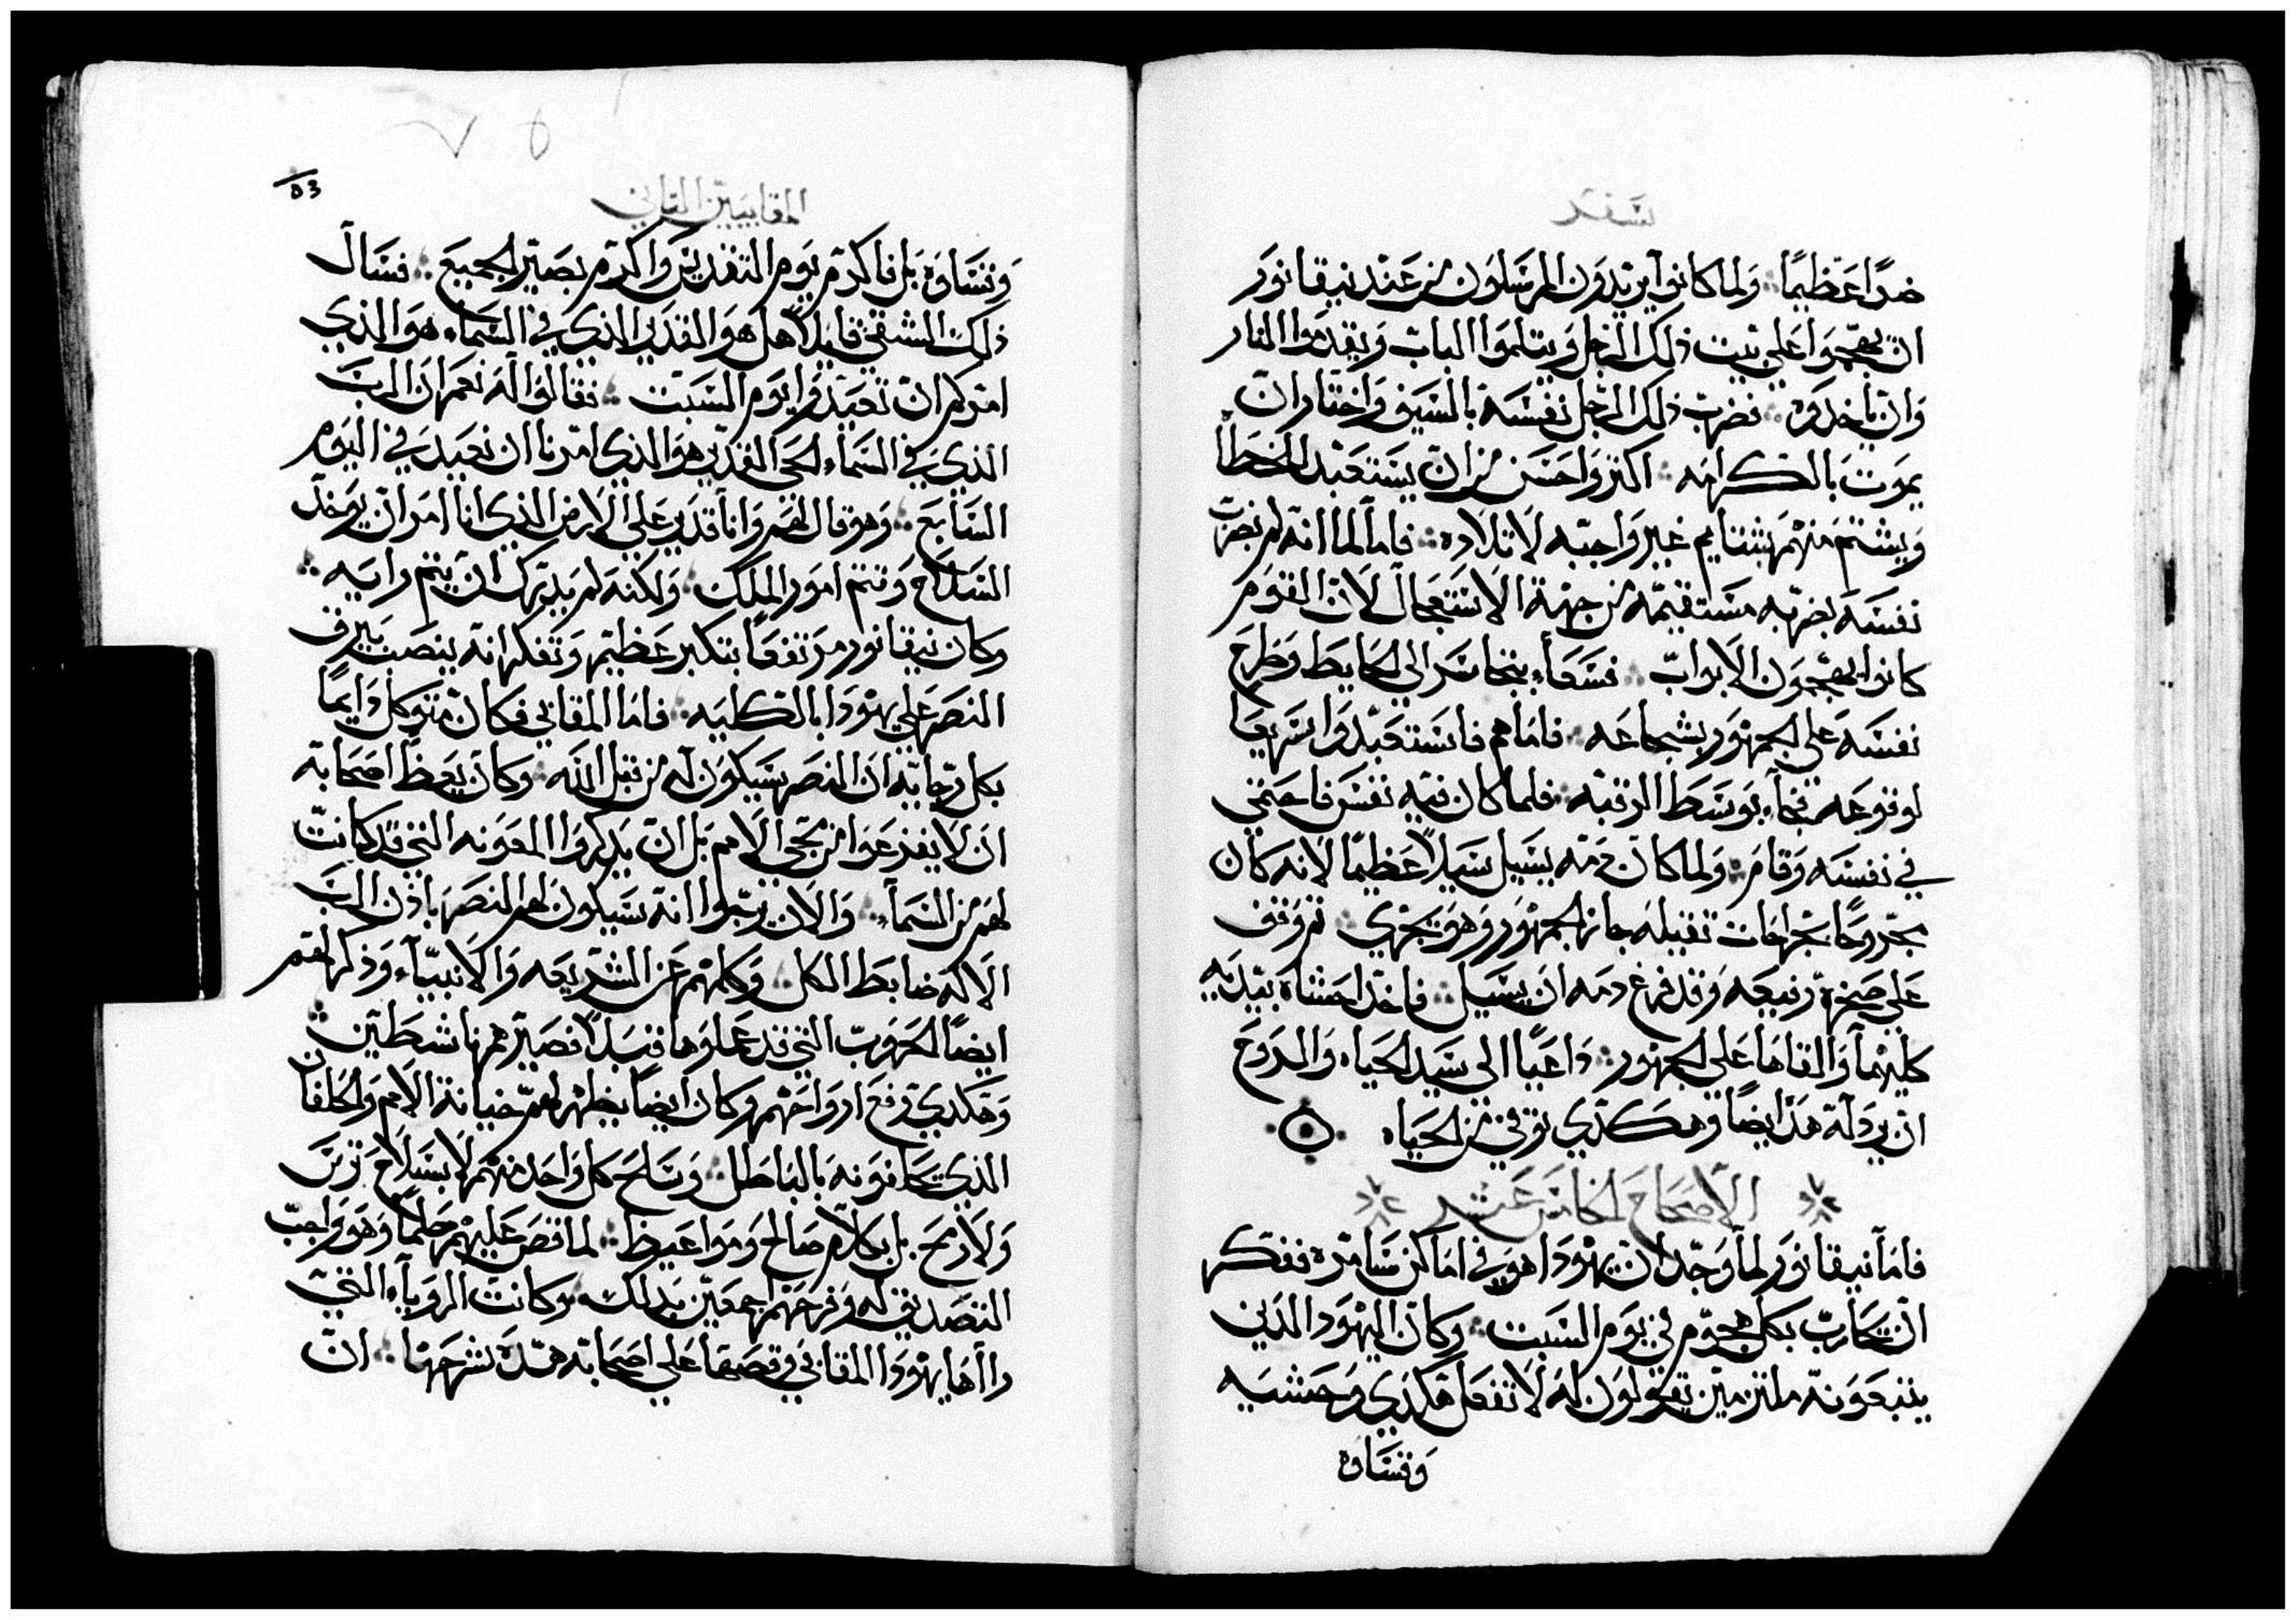 سفر
ضدًا عظيمًا ولما كانوا يريدون المرسلون من عند نيقانور
ان يهجموا على بيت ذلك الرجل ويثلموا الباب ويقدموا النار
وان ياخدوه فضرب ذلك الرجل نفسه بالسيف واختار ان
يموت بالكرامه اكتر واحسن من ان يستعبد للخطا
ويشتم منهم بشتايم غير واجبه لاتلاده فامآ لما انه لم يضرب
نفسه بضربه مستقيمه من جهة الاستعجال لان القوم
كانوا يهجمون الابواب فسعا بتجاسر الى الحايط وطرح
نفسه على الجمهور بشجاعه فاما هم فاستعبدوا سريعا
لوقوعه فجاء بوسط الرقبه فلما كان فيه نفس فاحتمى
في نفسه وقام ولما كان دمه يسيل سيلاً عظيمًا لانه كان
مجروحًا بجراحات تقيله جاز الجمهور وهو يجري تم وقف
على صخرة رفيعه وقد فرغ دمه ان يسيل فاخد احشاه بيديه
كليهما والقاها على الجمهور داعيًا الى سيد الحياه والروح
ان يرد له هدا ايضًا وهكدي توفي من الحياه
الاصحاح الخامس عشر
فامآ نيقانور لما وجد ان يهودا هو في اماكن سامره ففكر
ان يحارب بكل هجوم في يوم السبت وكان اليهود الدين
يتبعونه ملتزمين يقولون له لا تفعل هكدي وحشيه
وقساوه
المقابيين التاني
53
وقساوه بل فاكرم يوم التقديس واكرم بصير الجميع فسال
ذلك الشقي قايلاً هل هو القدير الذي في السماء هو الذي
امركم ان تعيدوا يوم السبت فقالوا له نعم ان الرب
الذي في السماء الحي القدير هو الذي امرنا ان نعيد في اليوم
السابع وهو قال لهم وانا قدير على الارض الذي انا امر ان يوخد
السلاح وتتم امور الملك ولكنه لم يدرك ان يتم رايه
وكان نيقانور مرتفعًا بتكبر عظيم وتفكر انه ينصب بيرق
النصر على يهودا بالكليه فاما المقابي فكان متوكل دايمًا
بكل رجايه ان النصر سيكون له من قبل الله وكان يعظ اصحابه
ان لا يفزعوا من مجي الامم بل ان يدكروا المعونه التي قد كانت
لهم من السماء والان يترجوا انه سيكون لهم النصر باذن الرب
الاله ضابط الكل وكلمهم عن الشريعه والانبياء وذكر لهم
ايضًا الحروب التي قد عملوها قبلاً فصيرهم ناشطين
وهكدي رفع ارواحهم وكان ايضًا يظهر لهم خيانة الامم والحلفان
الذي يحلفونه بالباطل وسلح كل واحد منهم لا بسلاح ترس
ولا رمح بل بكلام صالح ومواعيظ لما قص عليهم حلمًا وهو واجب
التصديق له وفرحهم اجمعين بدلك وكانت الرويآء التي
رااها يهودا المقابي وقصها على اصحابه هده شرحها ان